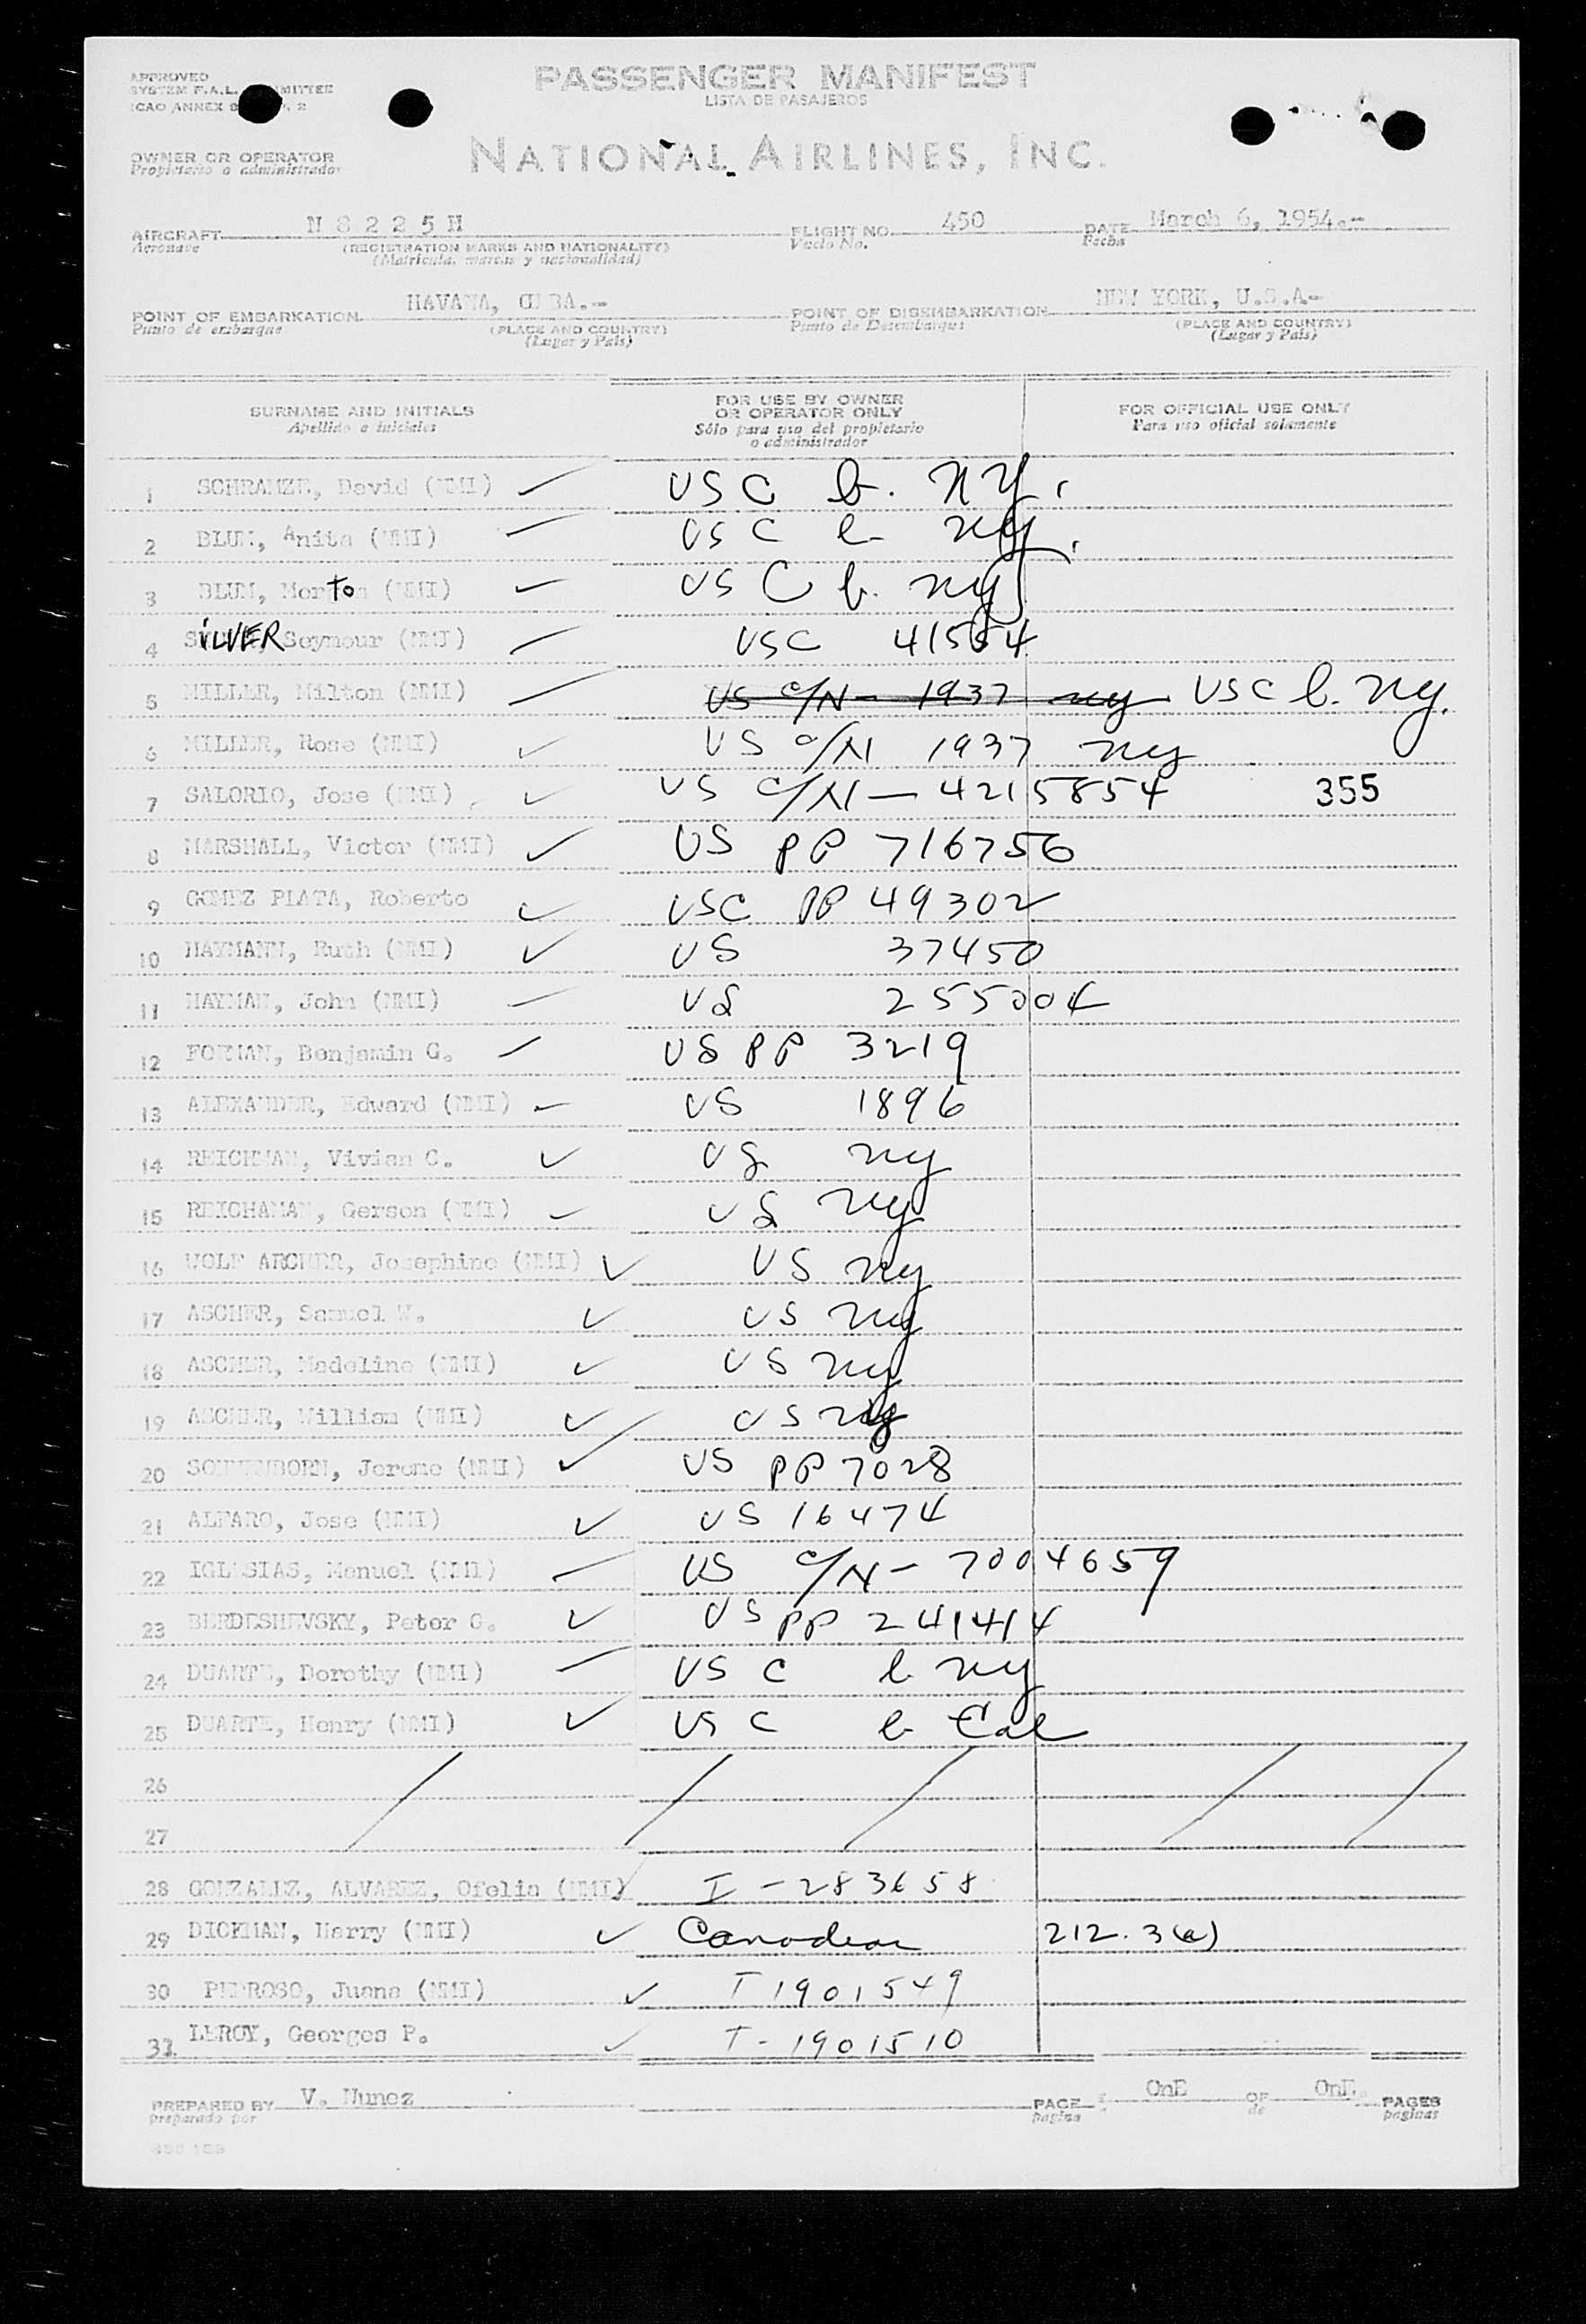 APPROVED
SYSTEM F.A.L. MITTEE
ICAO ANNEX 2
PASSENGER MANIFEST
LISTA DE PASAJEROS
OWNER OR OPERATOR
Propietario o administrador
NATIONAL AIRLINES, INC.
AIRCRAFT N 8 2 2 5 H
Aeronave
(REGISTRATION MARKS AND NATIONALITY)
(Matricula, marcas y nacionalidad)
FLIGHT NO. 450
Vuelo No.
DATE March 6, 1954.-
Fecha
POINT OF EMBARKATION HAVANA, CUBA.-
Punto de embarque
(PLACE AND COUNTRY)
(Lugar y Pais)
POINT OF DISEMBARKATION NEW YORK, U.S.A-
Punto de Desembarque
(PLACE AND COUNTRY)
(Lugar y Pais)
SURNAME AND INITIALS
Apellido e iniciales
FOR USE BY OWNER
OR OPERATOR ONLY
Sólo para uso del propietario
o administrador
FOR OFFICIAL USE ONLY
Para uso oficial solamente
1 SCHRAMZE, David (NMI) ✓ USC b. NY.
2 BLUM, Anita (NMI) ✓ USC b. NY.
3 BLUM, Morton (NMI) ✓ USC b. NY
4 SILVER Seymour (NMI) ✓ USC 41564
5 MILLER, Milton (NMI) ✓ US c/N - 1937 NY USC b. NY.
6 MILLER, Rose (NMI) ✓ US c/N 1937 NY
7 SALORIO, Jose (NMI) ✓ US c/N - 4215854 355
8 MARSHALL, Victor (NMI) ✓ US PP 716756
9 GOMEZ PLATA, Roberto ✓ USC PP 49302
10 HAYMANN, Ruth (NMI) ✓ US 37450
11 HAYMAN, John (NMI) ✓ US 255004
12 FORMAN, Benjamin G. ✓ US PP 3219
13 ALEXANDER, Edward (NMI) ✓ US 1896
14 REICHMAN, Vivian C. ✓ US NY
15 REICHAMAN, Gerson (NMI) ✓ US NY
16 WOLF ARCHER, Josephine (NMI) ✓ US NY
17 ASCHER, Samuel W. ✓ US NY
18 ASCHER, Madeline (NMI) ✓ US NY
19 ASCHER, William (NMI) ✓ US NY
20 SONNENBORN, Jerome (NMI) ✓ US PP 7028
21 ALFARO, Jose (NMI) ✓ US 16474
22 IGLESIAS, Manuel (NMI) ✓ US c/N - 7004659
23 BERDESHEVSKY, Peter G. ✓ US PP 241414
24 DUARTE, Dorothy (NMI) ✓ USC b NY
25 DUARTE, Henry (NMI) ✓ USC b Cal
26
27
28 GONZALEZ, ALVAREZ, Ofelia (NMI) ✓ I - 283658
29 DICKMAN, Harry (NMI) ✓ Canadian 212.3(a)
30 PEDROSO, Juana (NMI) ✓ T 1901549
31 LEROY, Georges P. ✓ T - 1901510
PREPARED BY V. Nunez
preparado por
PAGE OnE OF OnE PAGES
pagina de paginas